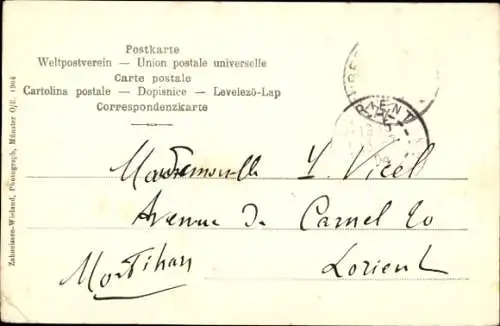 Postkarte
Weltpostverein — Union postale universelle
Carte postale
Cartolina postale — Dopisnice — Levelező-Lap
Correspondenzkarte
Mademoiselle Y. Vicel
Avenue de Carnel 20
Morbihan Lorient
Zahnissen-Wieland, Photograph, Münster O/E. 1904
RIENT